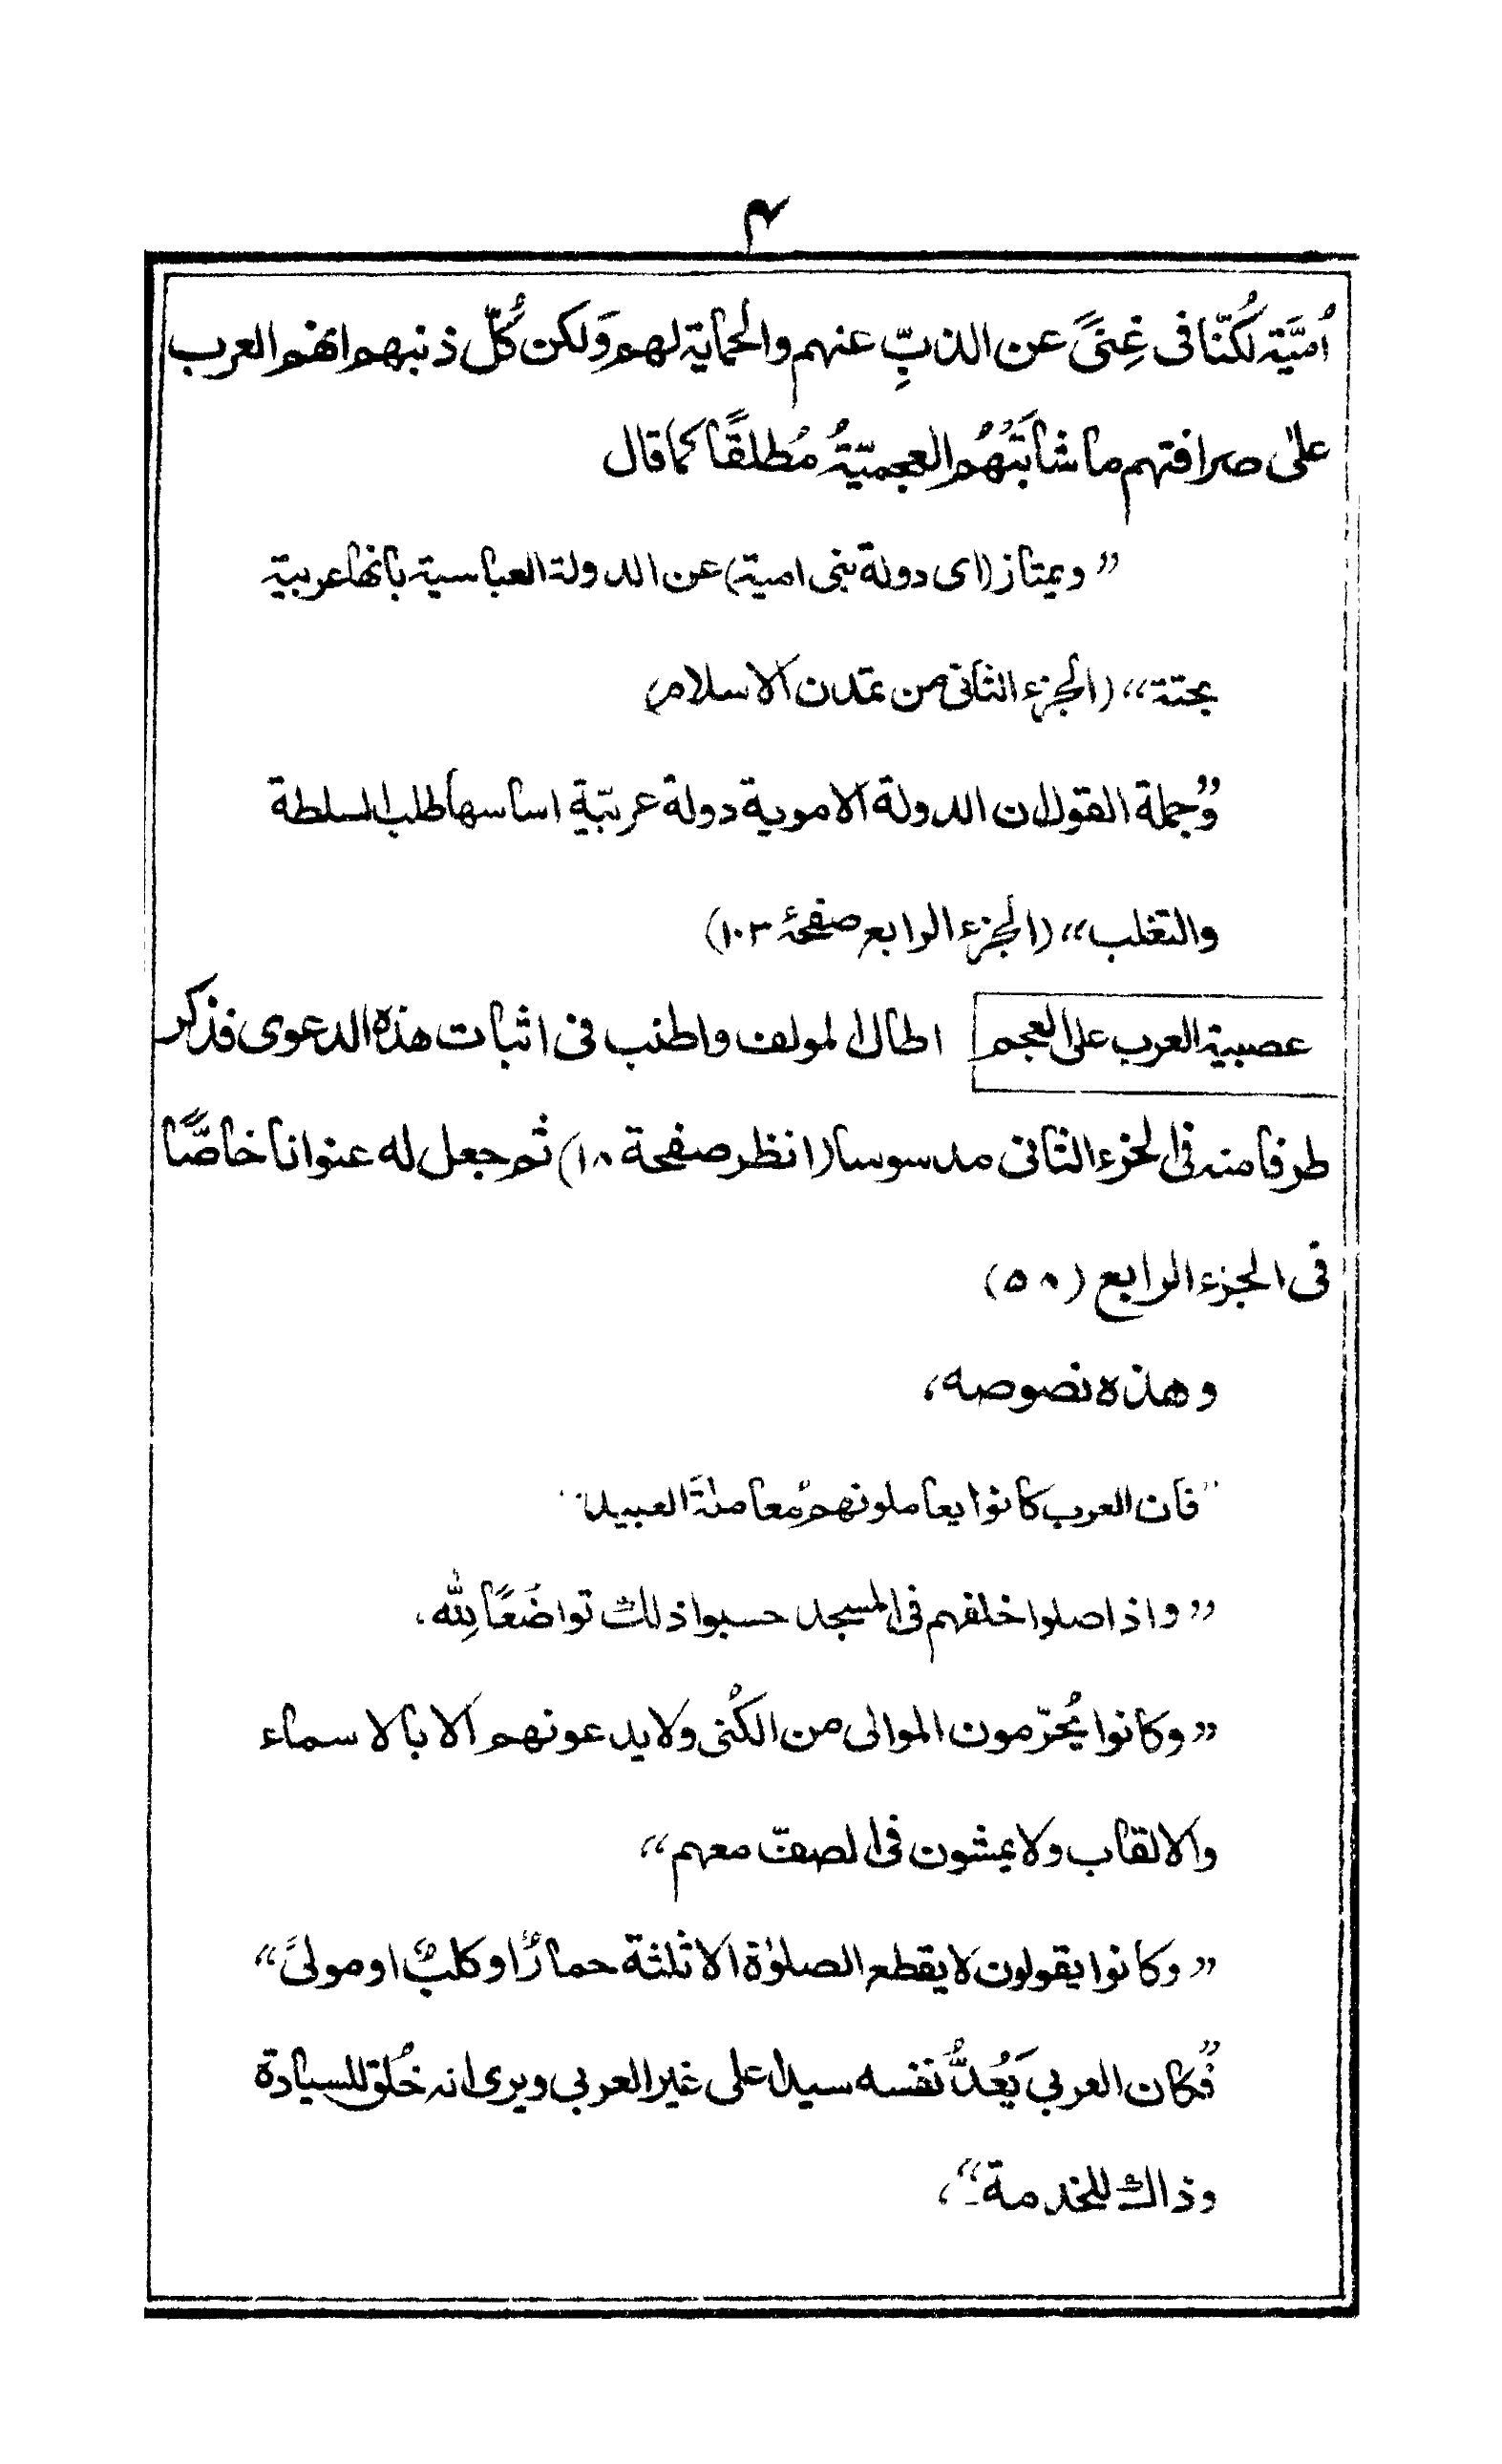 ۴
اُمَيَّة لَكُنّا فى غِنىً عن الذبِّ عنهم والحماية لهم وَلكن كُلّ ذنبهم انهم العرب
علىٰ صرافتهم ما شابَتْهُم العجميّةُ مُطلقًا كما قال
”ويمتاز (اى دولة بنى امية) عن الدولة العباسية بانها عربية
بحتة“ (الجزء الثانى من تمدن الاسلام)
”وجملة القول ان الدولة الاموية دولة عربيّة اساسها طلب السلطة
والتغلب“ (الجزء الرابع صفحۂ ۱۰۳)
عصبية العرب على العجم اطال المولف واطنب فى اثبات هذه الدعوى فذكر
طرفا منه فى الجزء الثانى مدسوسا (انظر صفحة ۱۸) ثم جعل له عنوانا خاصًّا
فى الجزء الرابع (۵۸)
وهذه نصوصه،
”فان العرب كانوا يعاملونهم معاملةَ العبيد“
”واذا صلوا خلفهم فى المسجد حسبوا ذلك تواضُعًا لِلّٰه،
”وكانوا يُحَرّمون الموالى من الكُنى ولا يدعونهم الا بالاسماء
والالقاب ولا يمشون فى الصفّ معهم“
”وكانوا يقولون لا يقطع الصلوٰة الا ثلثة حمارٌ او كلبٌ او مولىً“
”فكان العربي يَعُدُّ نفسه سيدا على غير العربي ويرى انه خُلق للسيادة
وذاك للخدمة“،